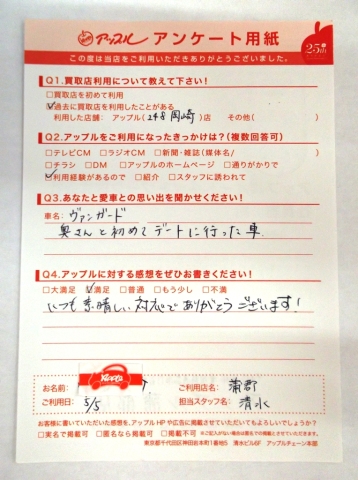 アップル アンケート用紙
25th
この度は当店をご利用いただきありがとうございました。
Q1.買取店利用について教えて下さい!
□買取を初めて利用
☑過去に買取店を利用したことがある
利用した店舗: アップル(248岡崎)店 その他( )
Q2.アップルをご利用になったきっかけは?(複数回答可)
□テレビCM □ラジオCM □新聞・雑誌(媒体名/ )
□チラシ □DM □アップルのホームページ □通りがかりで
☑利用経験があるので □紹介 □スタッフに誘われて
Q3.あなたと愛車との思い出を聞かせください!
車名: ヴァンガード
奥さんと初めてデートに行った車
Q4.アップルに対する感想をぜひお書きください!
□大満足 ☑満足 □普通 □もう少し □不満
いつも素晴しい対応でありがとうございます!
お名前:
Apple
ご利用店名: 蒲郡
ご利用日: 5/5
担当スタッフ名: 清水
お客様に書いていただいた感想を、アップルHPや広告に掲載させていただいてもよろしいでしょうか?
□実名で掲載可 □匿名なら掲載可 □掲載不可
東京都千代田区神田岩本町1番地5 清水ビル6F アップルチェーン本部